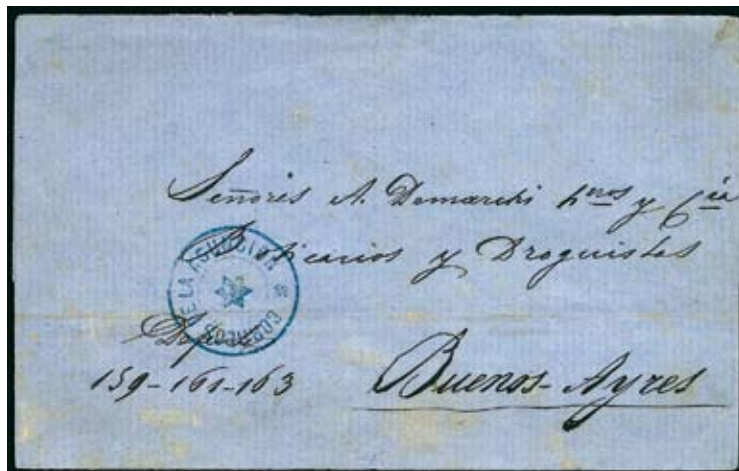 Señores A. Demarchi h<sup>nos</sup> y C<sup>ia</sup>
Boticarios y Droguistas
CORREOS DE LA ASUNCION
159-161-163
Buenos-Ayres